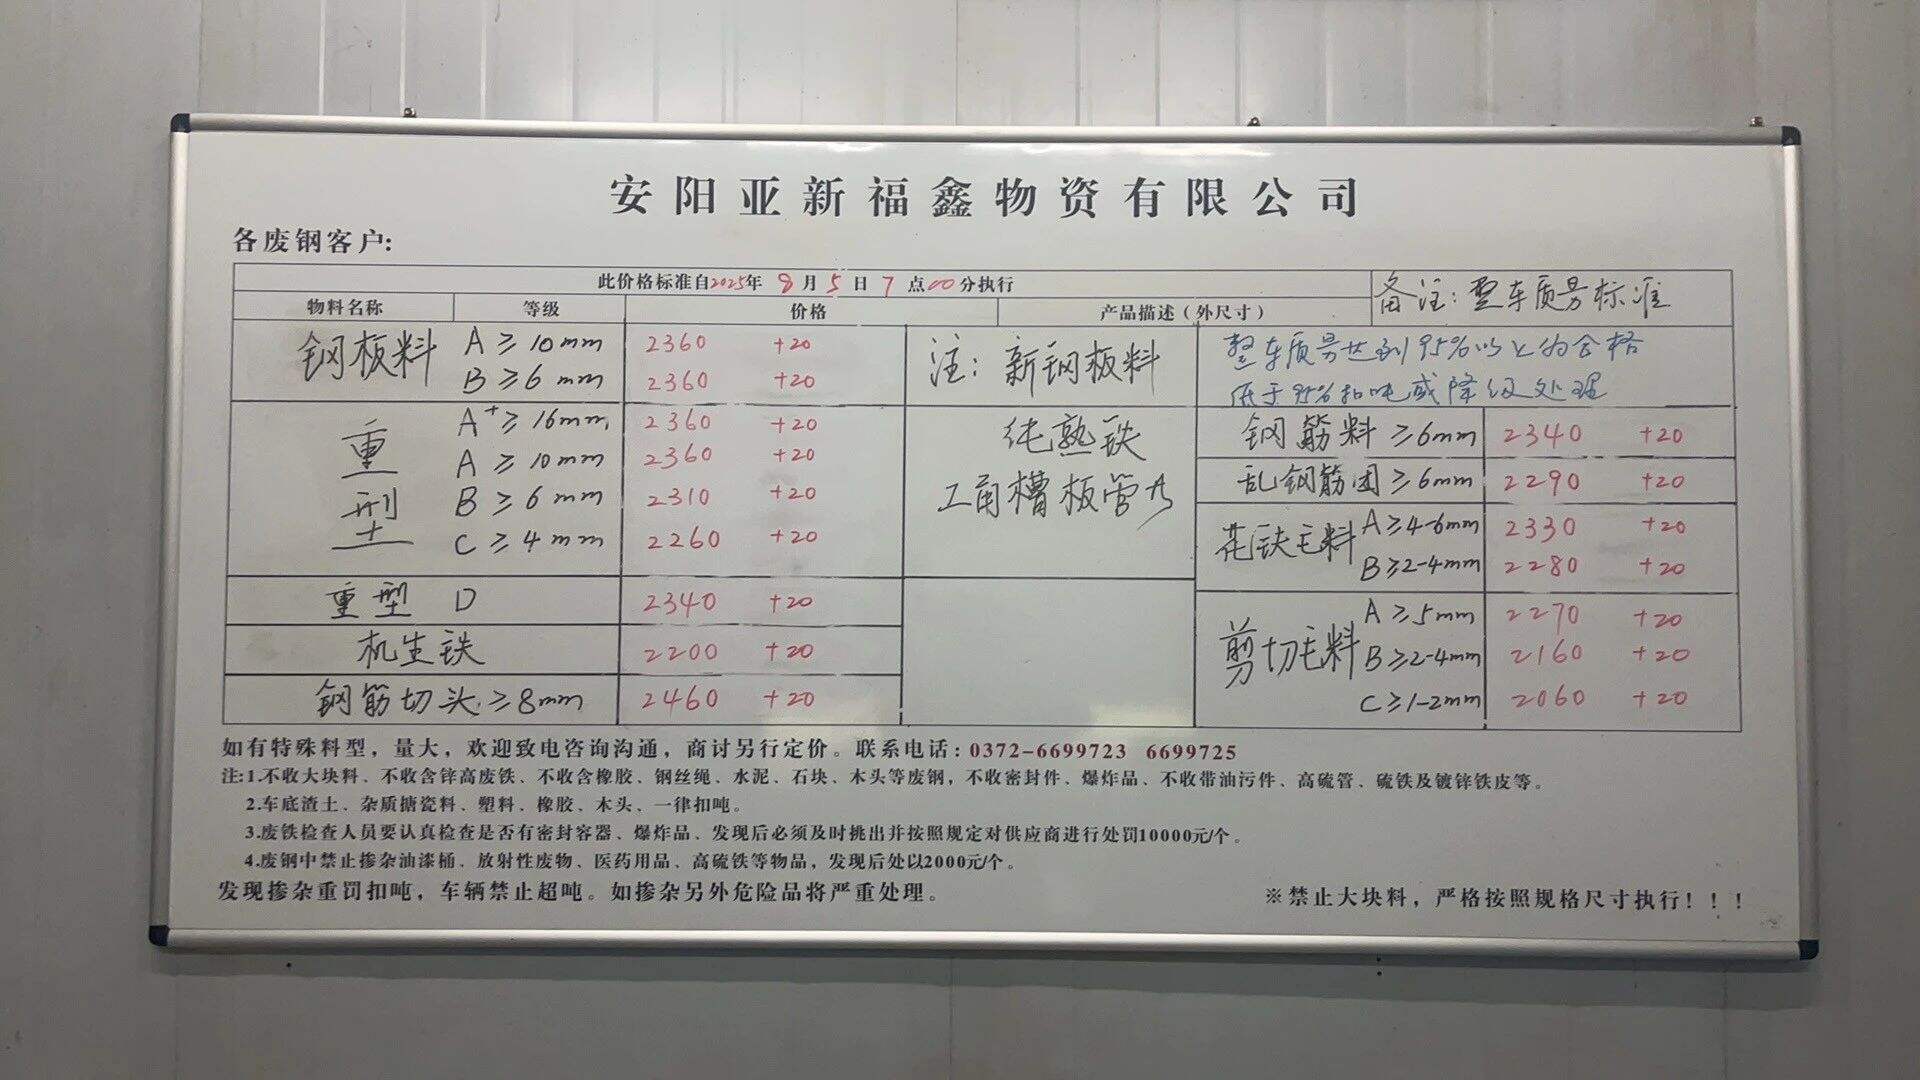 安阳亚新福鑫物资有限公司
各废钢客户:
此价格标准自2025年 8月 5日 7点00分执行
备注: 整车质另标准
物料名称 等级 价格 产品描述(外尺寸)
钢板料 A ≥ 10mm 2360 +20
B ≥ 6mm 2360 +20
注: 新钢板料
整车质另达到95%以上为合格
低于95%扣吨或降级处理
重型 A+ ≥ 16mm 2360 +20
A ≥ 10mm 2360 +20
B ≥ 6mm 2310 +20
C ≥ 4mm 2260 +20
纯熟铁
工角槽板管
重型 D 2340 +20
机生铁 2200 +20
钢筋切头 ≥8mm 2460 +20
钢筋料 ≥6mm 2340 +20
乱钢筋团 ≥6mm 2290 +20
花铁毛料 A ≥4-6mm 2330 +20
B ≥2-4mm 2280 +20
剪切毛料 A ≥5mm 2270 +20
B ≥2-4mm 2160 +20
C ≥1-2mm 2060 +20
如有特殊料型，量大，欢迎致电咨询沟通，商讨另行定价。联系电话: 0372-6699723 6699725
注: 1.不收大块料、不收含锌高废铁、不收含橡胶、钢丝绳、水泥、石块、木头等废钢，不收密封件、爆炸品、不收带油污件、高硫管、硫铁及镀锌铁皮等。
2.车底渣土、杂质搪瓷料、塑料、橡胶、木头、一律扣吨。
3.废铁检查人员要认真检查是否有密封容器、爆炸品、发现后必须及时挑出并按照规定对供应商进行处罚10000元/个。
4.废钢中禁止掺杂油漆桶、放射性废物、医药用品、高硫铁等物品，发现后处以2000元/个。
发现掺杂重罚扣吨，车辆禁止超吨。如掺杂另外危险品将严重处理。
※禁止大块料，严格按照规格尺寸执行！！！